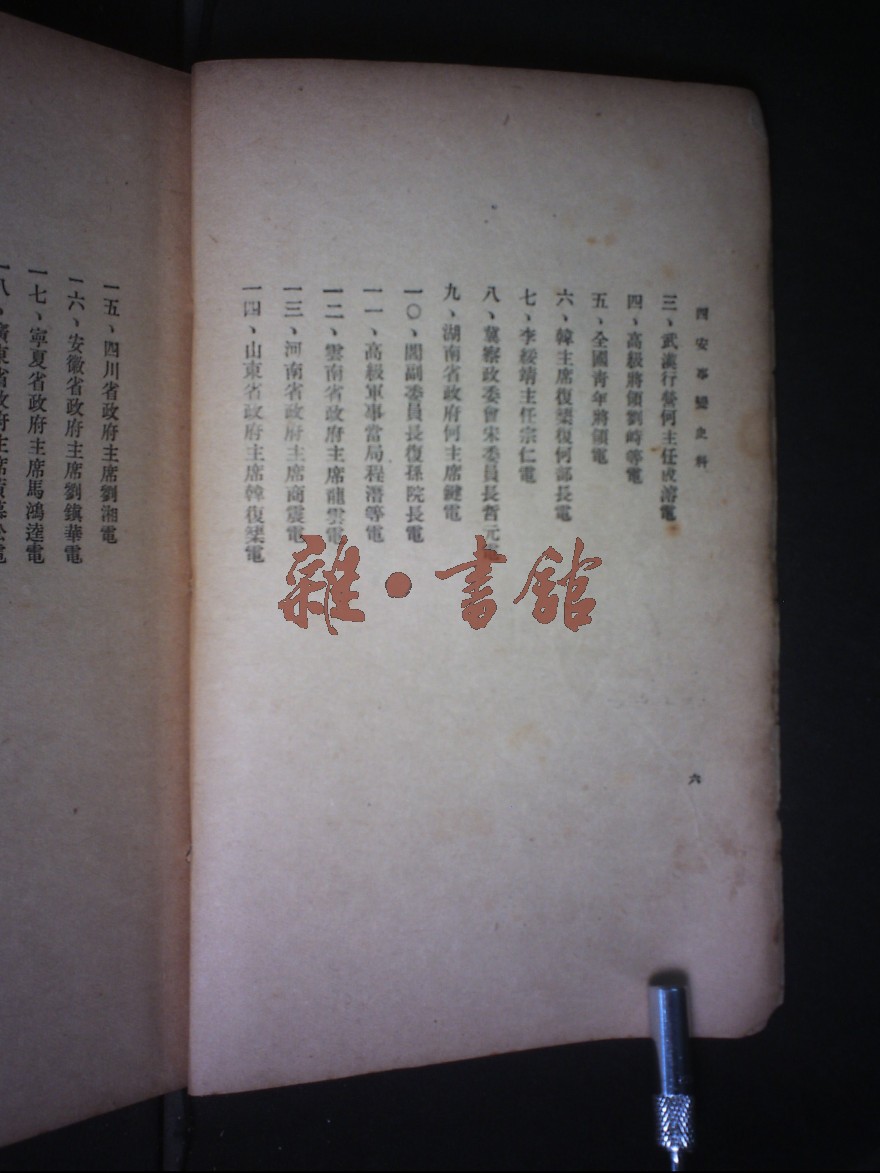 西安事變史料
三、武漢行營何主任成濬電
四、高級將領劉峙等電
五、全國青年將領電
六、韓主席復榘復何部長電
七、李綏靖主任宗仁電
八、冀察政委會宋委員長哲元電
九、湖南省政府何主席鍵電
一〇、閻副委員長復孫院長電
一一、高級軍事當局程潛等電
一二、雲南省政府主席龍雲電
一三、河南省政府主席商震電
一四、山東省政府主席韓復榘電
六
一五、四川省政府主席劉湘電
一六、安徽省政府主席劉鎮華電
一七、寧夏省政府主席馬鴻逵電
一八、廣東省政府主席黃慕松電
雜•書館